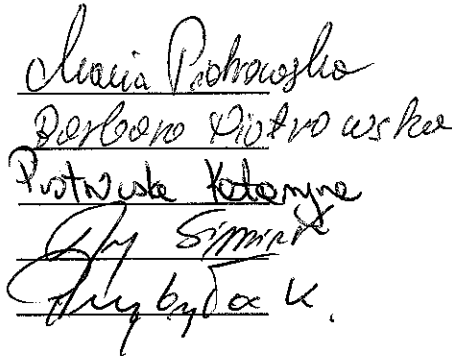 Maria Piotrowska
Barbara Piotrowska
Piotrowska Katarzyna
Przybyła K.